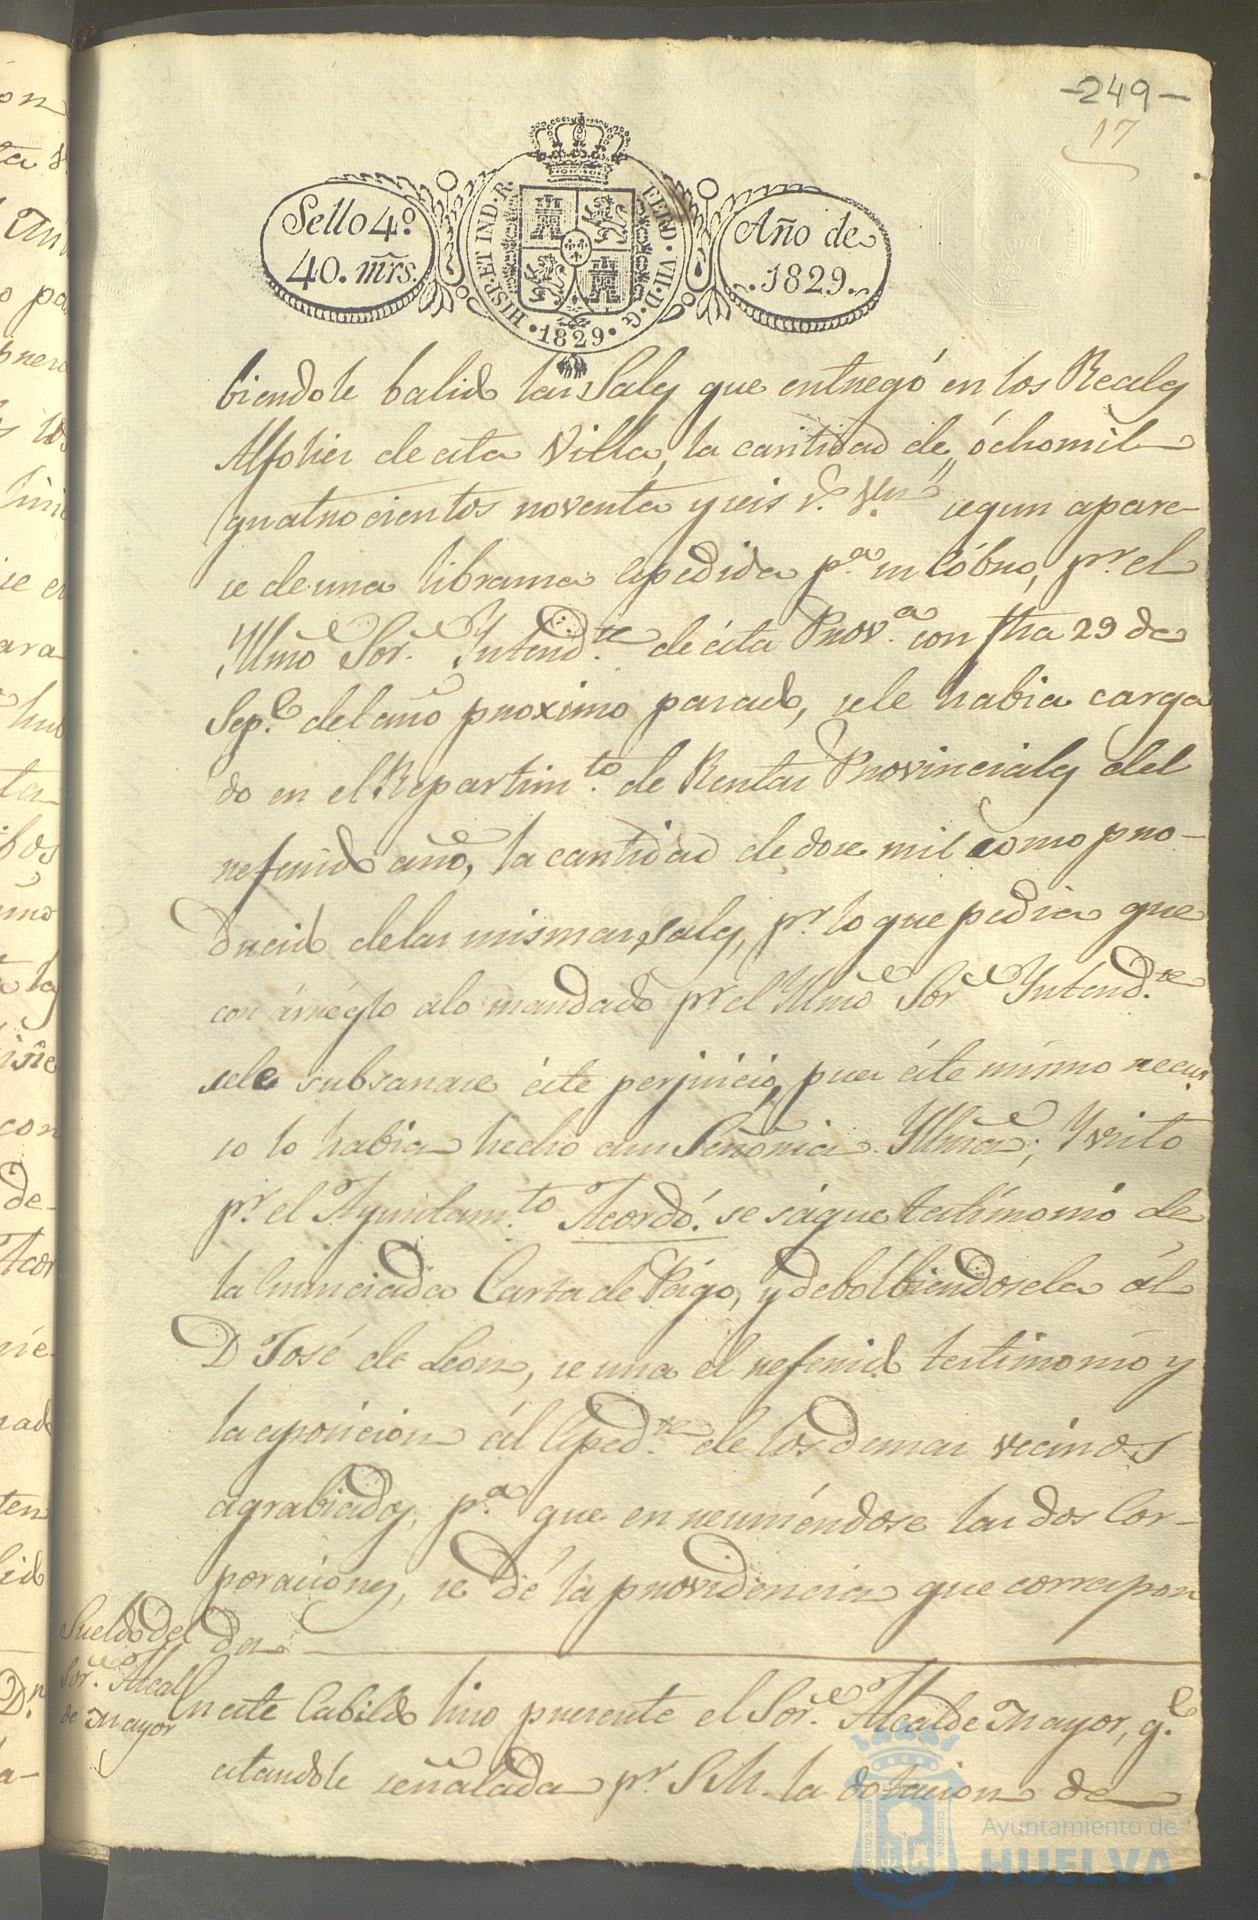 -249-
17
Sello 4º
40. mrs.
HISP. ET IND. R.
FERD. VII. D. G.
1829
Año de
1829.
biendole balido las Sales que entregó en los Reales
Alfolies de esta Villa, la cantidad de ,, óchomil
quatrocientos noventa y seis r.s V.n ,, segun apare-
se de una libransa espedida p.a su cóbro, p.r el
Yllmo Sor. Yntend.te de ésta Prov.a con fha 29 de
Sep.e del año proximo pasado, sele habia carga
do en el Repartim.to de Rentas Provinciales del
referido año, la cantidad de dose mil como pro-
ducido delas mismas sales, p.r lo que pedia que
con arreglo alo mandado p.r el Yllmo Sor Yntend.te
sele subsanase éste perjuicio, pues éste mismo recur
so lo habia hecho asu Señoria Yllma; Y visto
p.r el Ayuntam.to Acordó: se sáque testimonio de
la enunciada Carta de Págo, y debolbiendosela ál
D José de Leon, se una el referido testimonio y
la esposicion ál Esped.te de los demas vecinos
agrabiados, p.a que en reuniéndose las dos Cor-
poraciones, se dé la providencia que correspon
da
Sueldo del
Sor. Alcal
de Mayor
En este Cabildo hiso presente el Sor. Alcalde Mayor, q.e
estandole señalada p.r S.M. la dotacion de
Ayuntamiento de
HUELVA